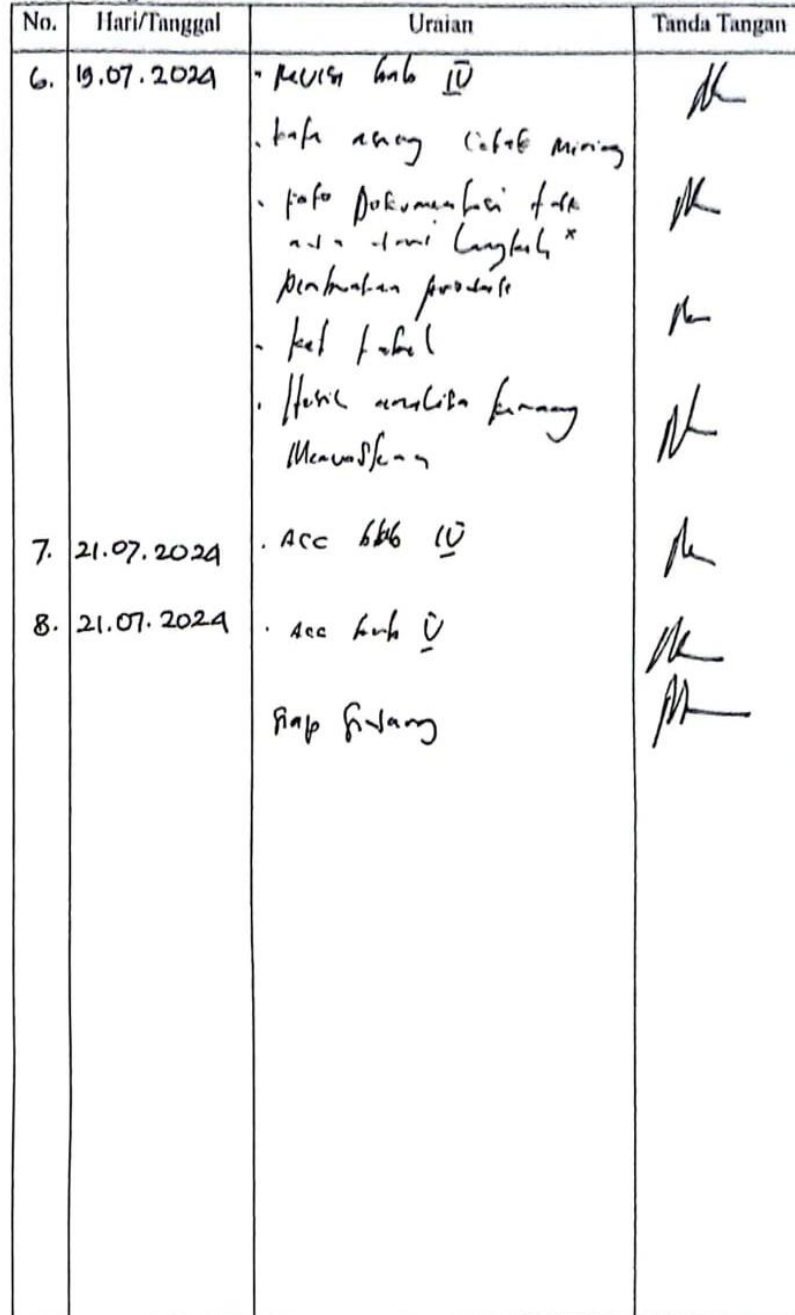 No. Hari/Tanggal Uraian Tanda Tangan
6. 19.07.2024 - Revisi bab IV
. kata asing cetak miring
. foto Dokumentasi tdk
ada dari langkah x
pembuatan produk
- ket tabel
. Hasil analisa kurang
Memuaskan
7. 21.07.2024 . Acc bab IV
8. 21.07.2024 . Acc bab V
Siap Sidang